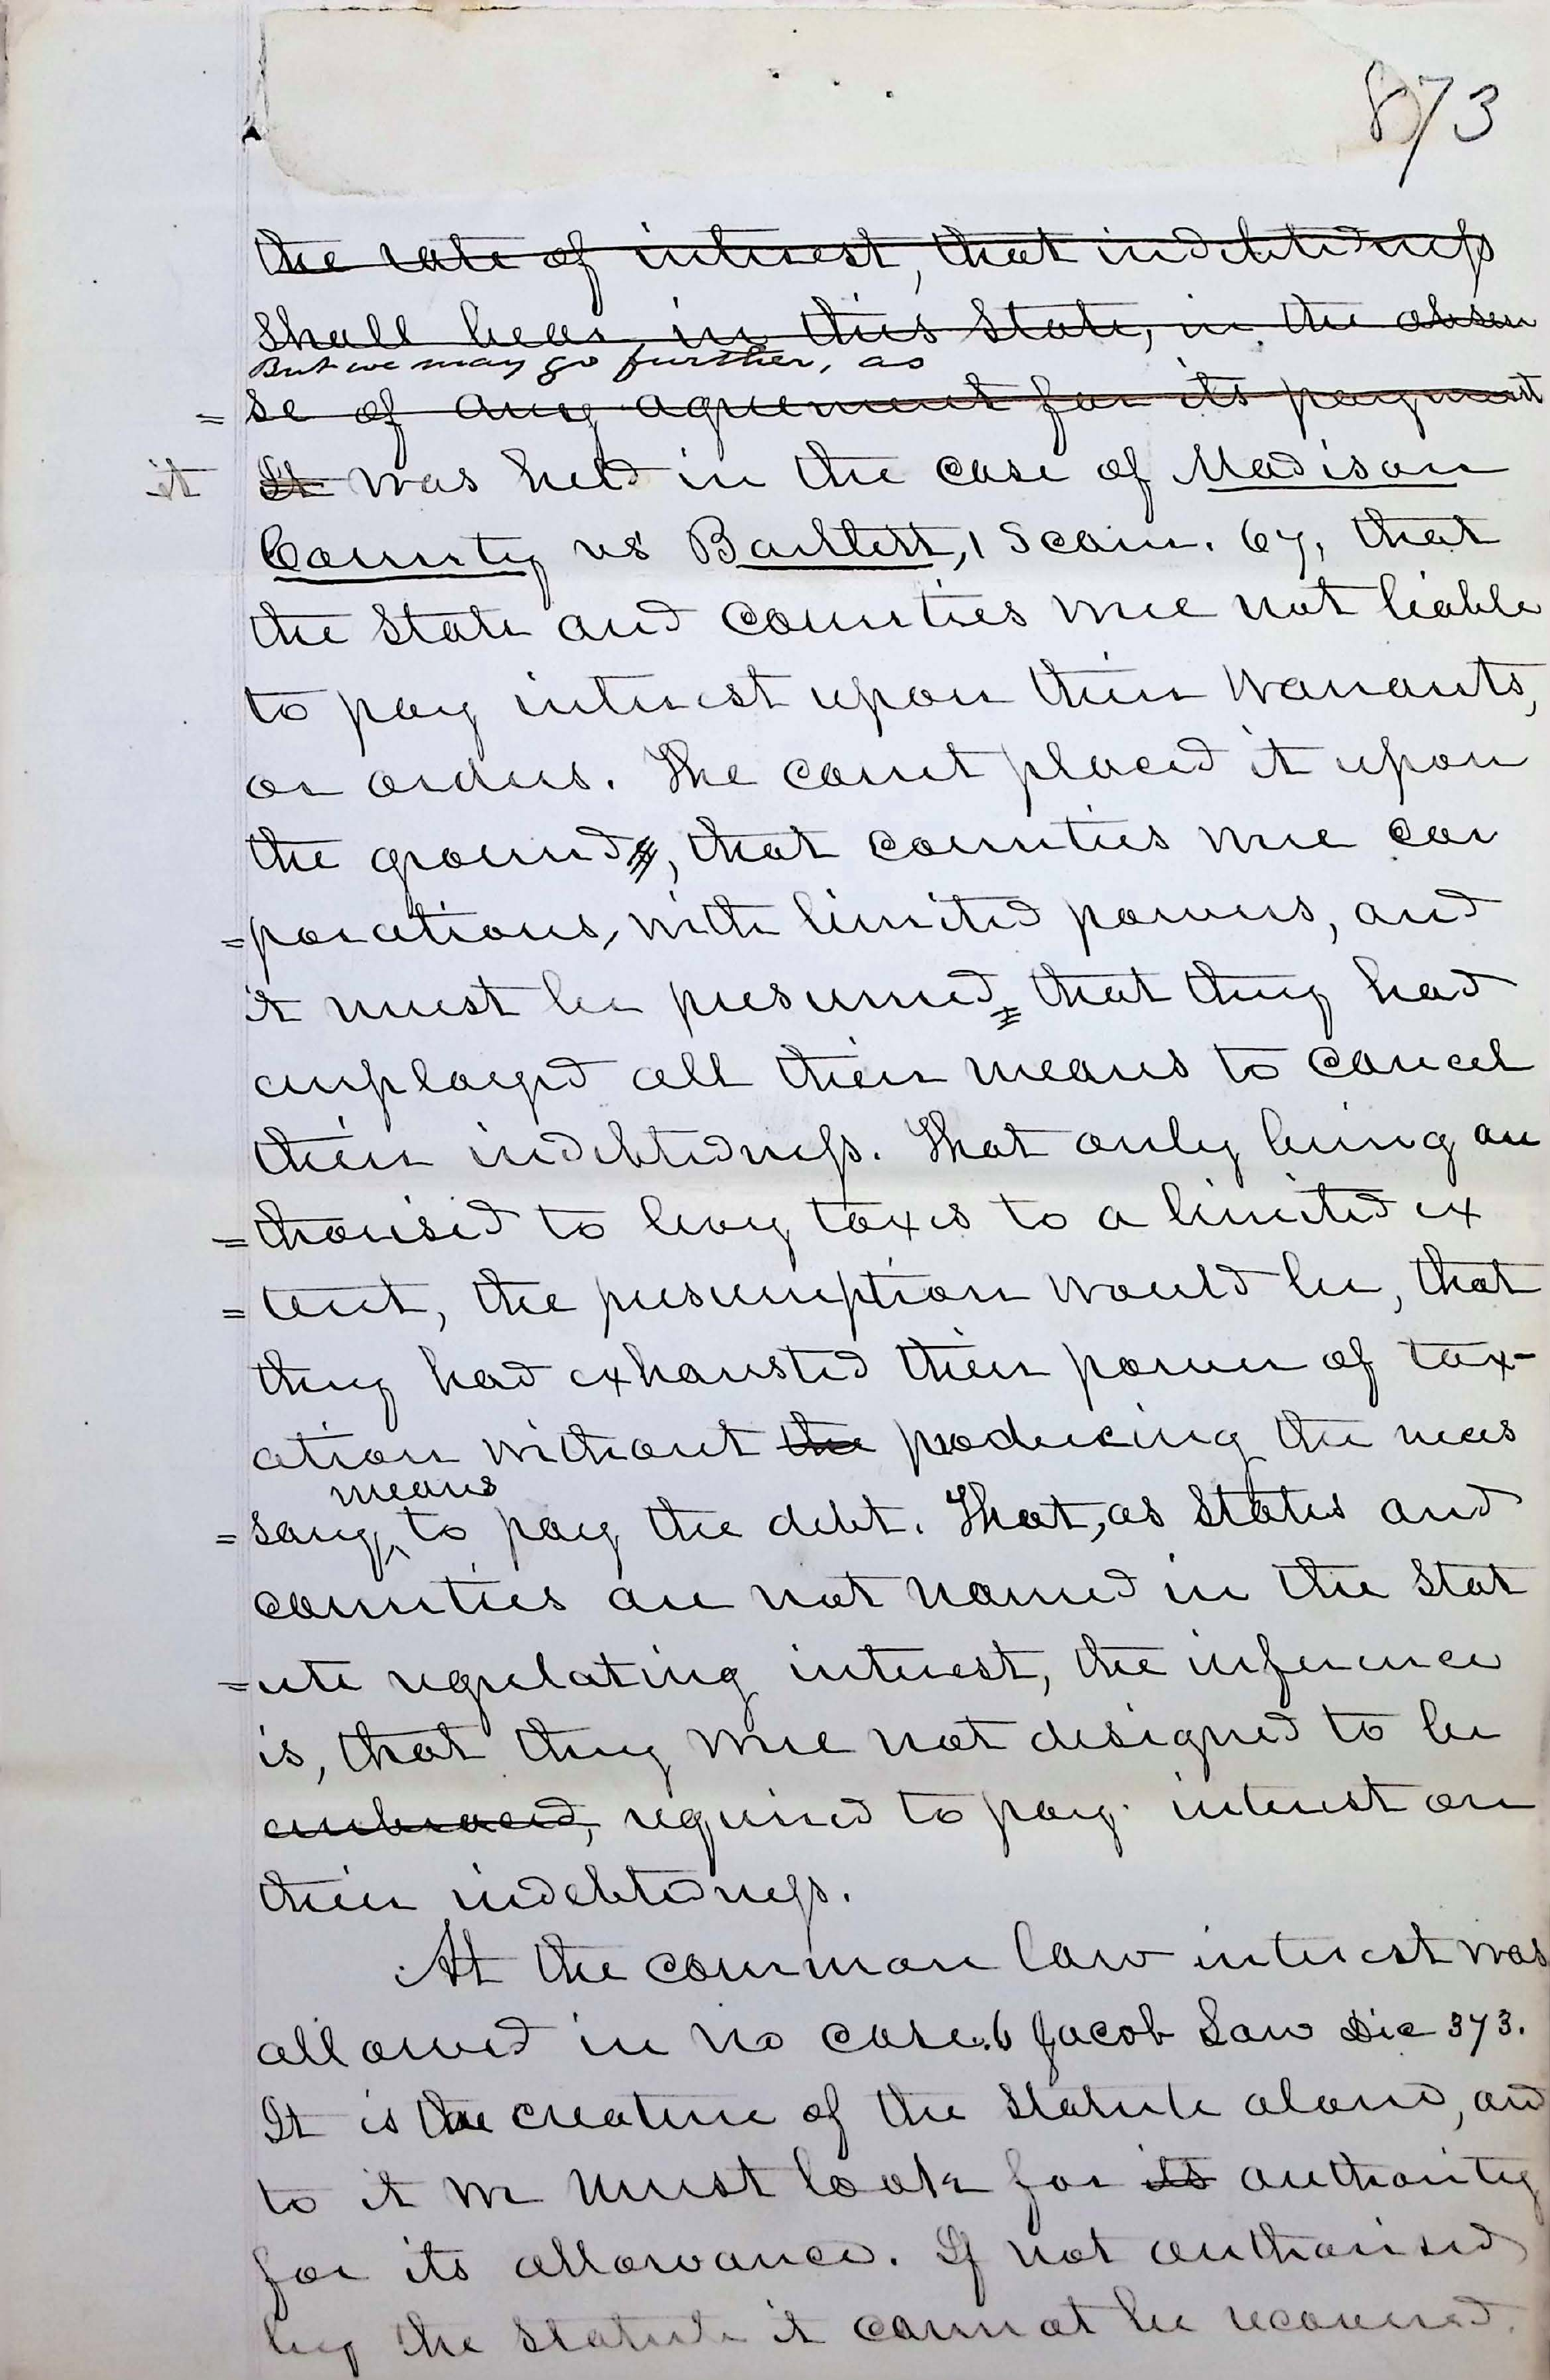 873
the rate of interest, that indebtedness
shall bear, in this State, in the absen
But we may go further, as
= se of any agreement for its payment
it It was held in the case of Madison
County vs Bartlett, 1 Scam. 67, that
the State and Counties were not liable
to pay interest upon their Warrants,
or orders. The court placed it upon
the ground, that counties were cor
=porations, with limited powers, and
it must be presumed that they had
employed all their means to cancel
their indebtedness. That only being au
=thorised to levy taxes to a limited ex
=tent, the presumption would be, that
they had exhausted their power of tax-
ation without the producing the neces
means
=sary to pay the debt. That, as States and
counties are not named in the Stat
=ute regulating interest, the inference
is, that they were not designed to be
embraced, required to pay interest on
their indebtedness.
At the common law interest was
allowed in no case. 6 Jacob Law Dic 373.
It is the creature of the Statute alone, and
to it we must look for its authority
for its allowance. If not authorised
by the Statute it cannot be recovered.